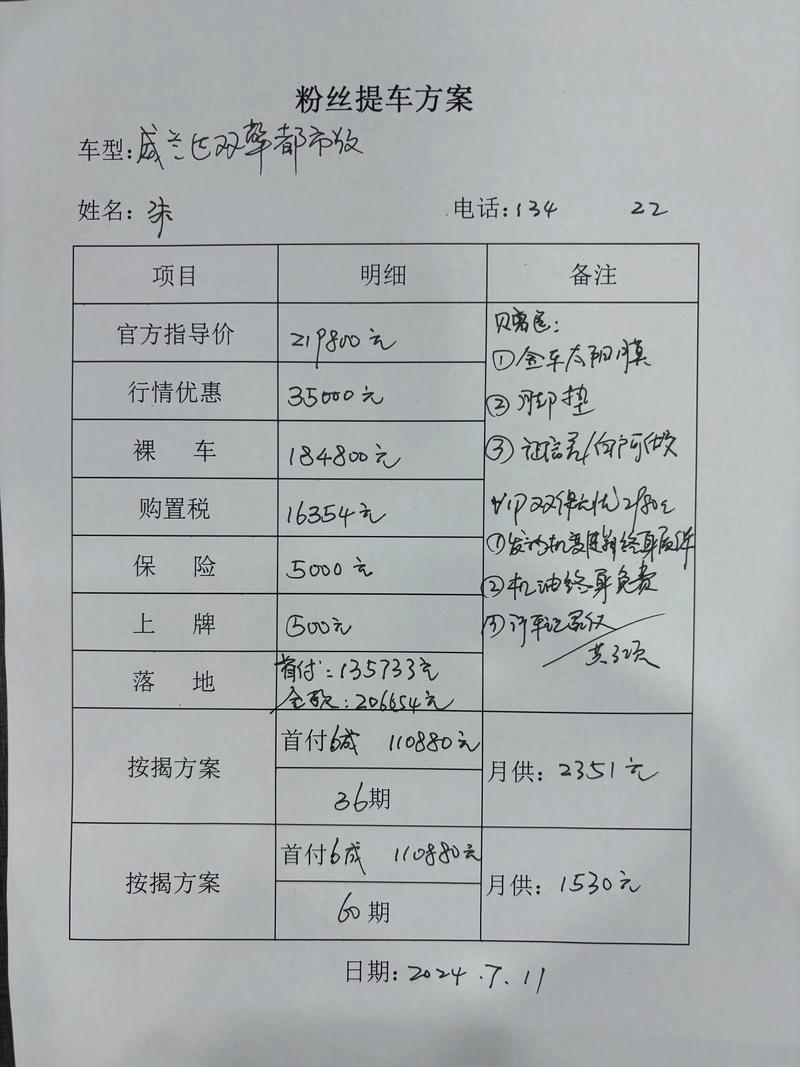 粉丝提车方案
车型: 威兰达双擎都市版
姓名: 朱
电话: 134 22
项目 明细 备注
官方指导价 219800元
行情优惠 35000元
裸 车 184800元
购置税 16354元
保 险 5000元
上 牌 500元
落 地 首付:135733元
全款:206654元
①全车太阳膜
②脚垫
③
VIP双保无忧2980元
①发动机变速箱终身质保
②机油终身免费
③行车记录仪
共3项
按揭方案 首付6成 110880元
36期
月供: 2351元
按揭方案 首付6成 110880元
60期
月供: 1530元
日期: 2024.7.11